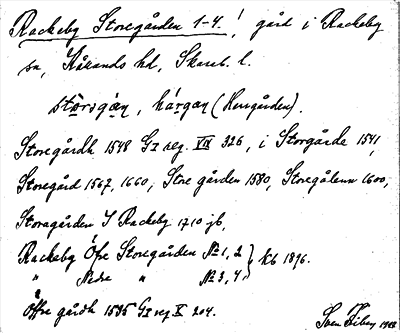 Rackeby Storegården 1-4. ! gård i Rackeby
sn, Kållands hd, Skarab. l.
stōrsgán, hárgan (Herrgården).
Storegårdh 1548 G I reg. XIX 326, i Storgårde 1541,
Storegård 1567, 1660, Store gården 1580, Storegålenn 1600,
Storagården I Rackeby 1710 jb,
Rackeby Öfre Storegården No 1, 2 } kb 1896.
" Nedre " No 3, 4 }
Öffre gårdh 1535 G I reg X 204.
Sven